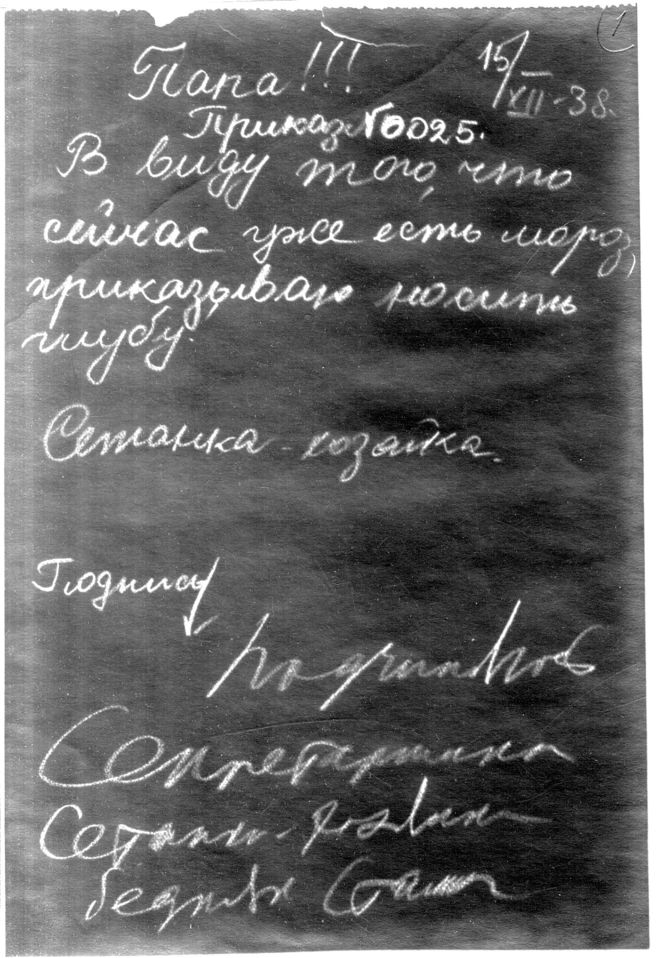 1
Папа!!! 15/XII-38.
Приказ №0025.
В виду того, что
сейчас уже есть мороз,
приказываю носить
шубу.
Сетанка-хозайка.
Подпись
Подчиняюсь
Секретаришка
Сетанки-хозяйки
бедняк Сталин